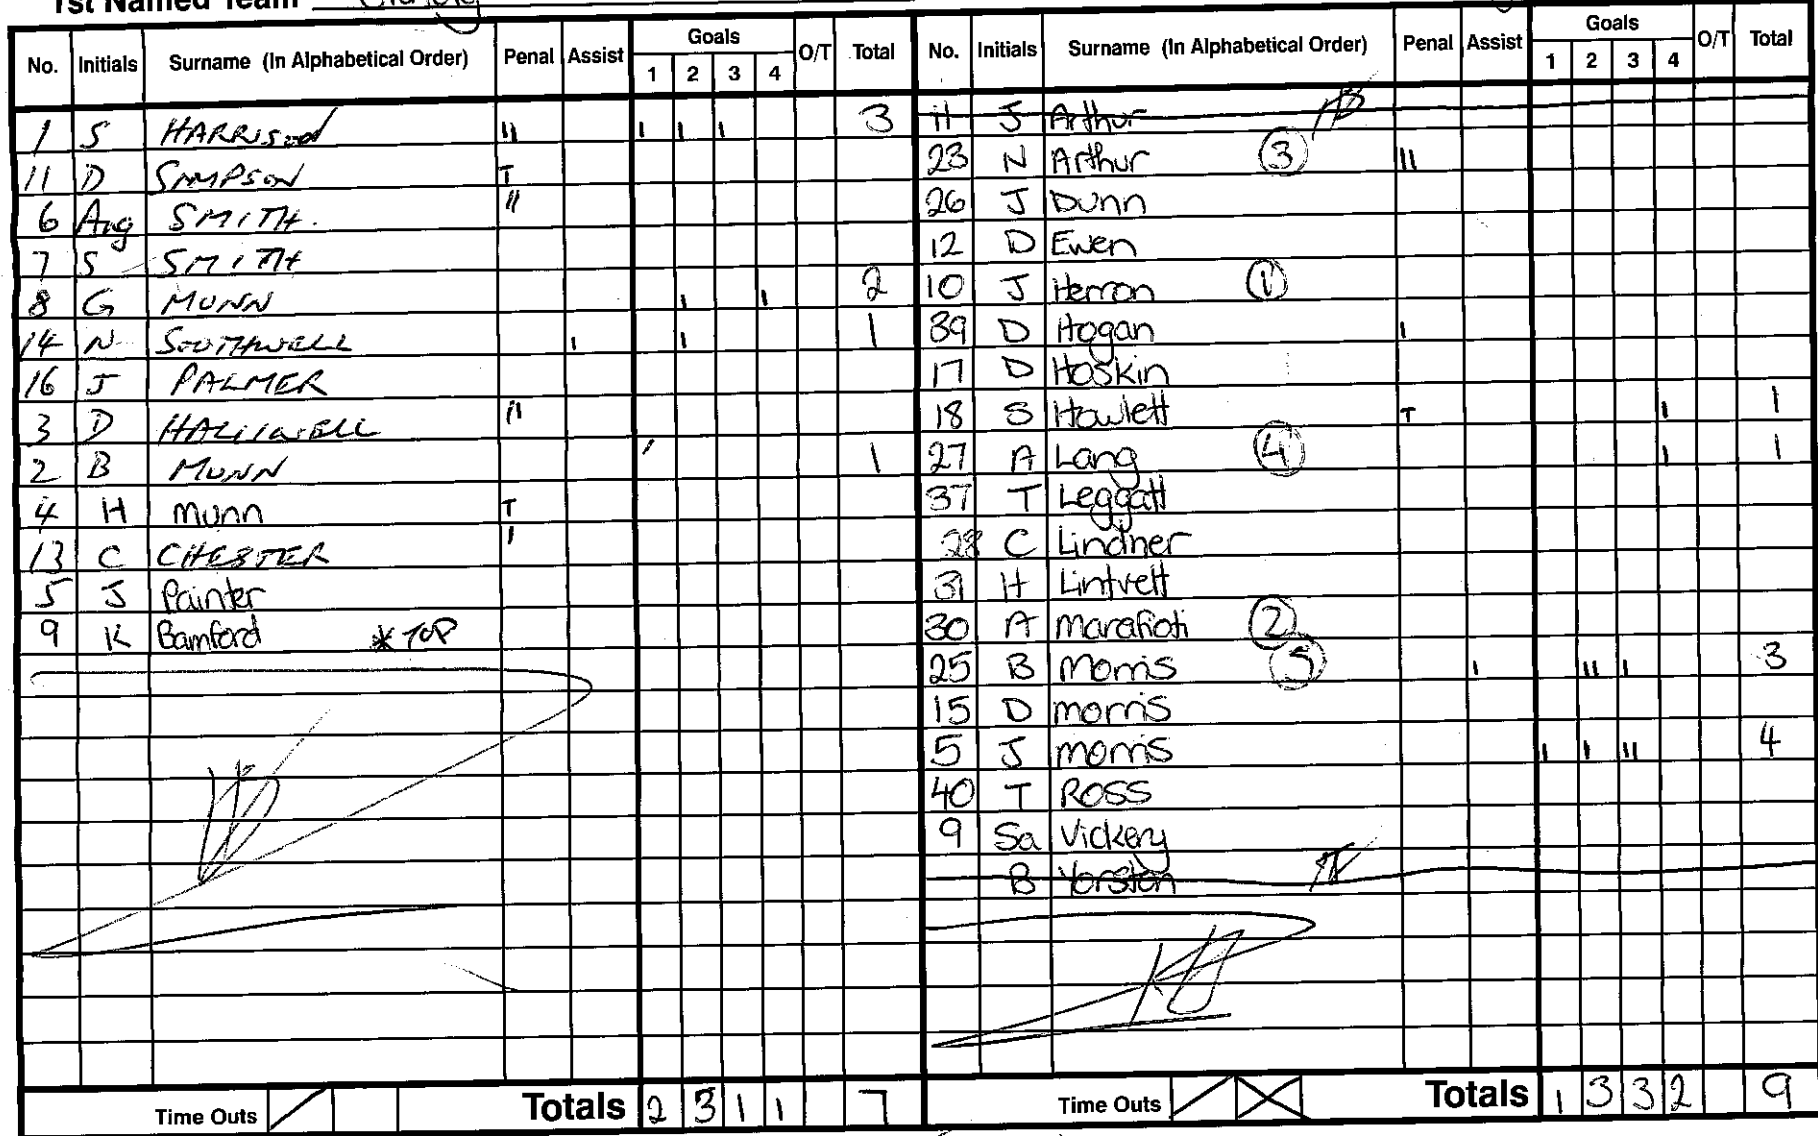 1st Named Team
No. Initials Surname (In Alphabetical Order) Penal Assist Goals 1 2 3 4 O/T Total
1 S HARRISON II I I I 3
11 D SAMPSON T
6 Aug SMITH. II
7 S SMITH
8 G MUNN I I 2
14 N SOUTHWELL I I 1
16 J PALMER
3 D HALLIWELL II
2 B MUNN I 1
4 H Munn T
13 C CHESTER I
5 J Painter
9 K Bamford * TOP
Time Outs / Totals 2 3 1 1 7
No. Initials Surname (In Alphabetical Order) Penal Assist Goals 1 2 3 4 O/T Total
11 J Arthur
23 N Arthur 3 II
26 J Dunn
12 D Ewen
10 J Herron 1
39 D Hogan I
17 D Hoskin
18 S Howlett T I 1
27 A Lang 4 I 1
37 T Leggatt
28 C Lindner
31 H Lintvelt
30 A Marafioti 2
25 B Morris 5 I II I 3
15 D Morris
5 J Morris I I II 4
40 T ROSS
9 Sa Vickery
B Yorston
Time Outs / X Totals 1 3 3 2 9